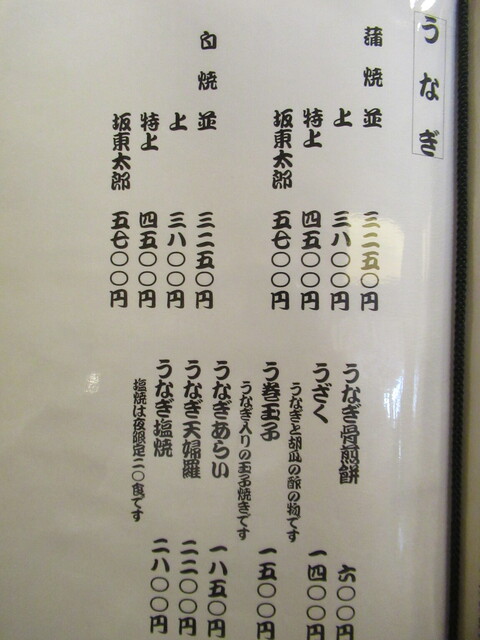 うなぎ
蒲焼 並 三二五〇円
上 三八〇〇円
特上 四五〇〇円
坂東太郎 五七〇〇円
白焼 並 三二五〇円
上 三八〇〇円
特上 四五〇〇円
坂東太郎 五七〇〇円
うなぎ骨煎餅 六〇〇円
うざく 一四〇〇円
うなぎと胡瓜の酢の物です
う巻玉子 一五〇〇円
うなぎ入りの玉子焼きです
うなぎあらい 一八五〇円
うなぎ天婦羅 二二〇〇円
うなぎ塩焼 二八〇〇円
塩焼は夜限定二〇食です